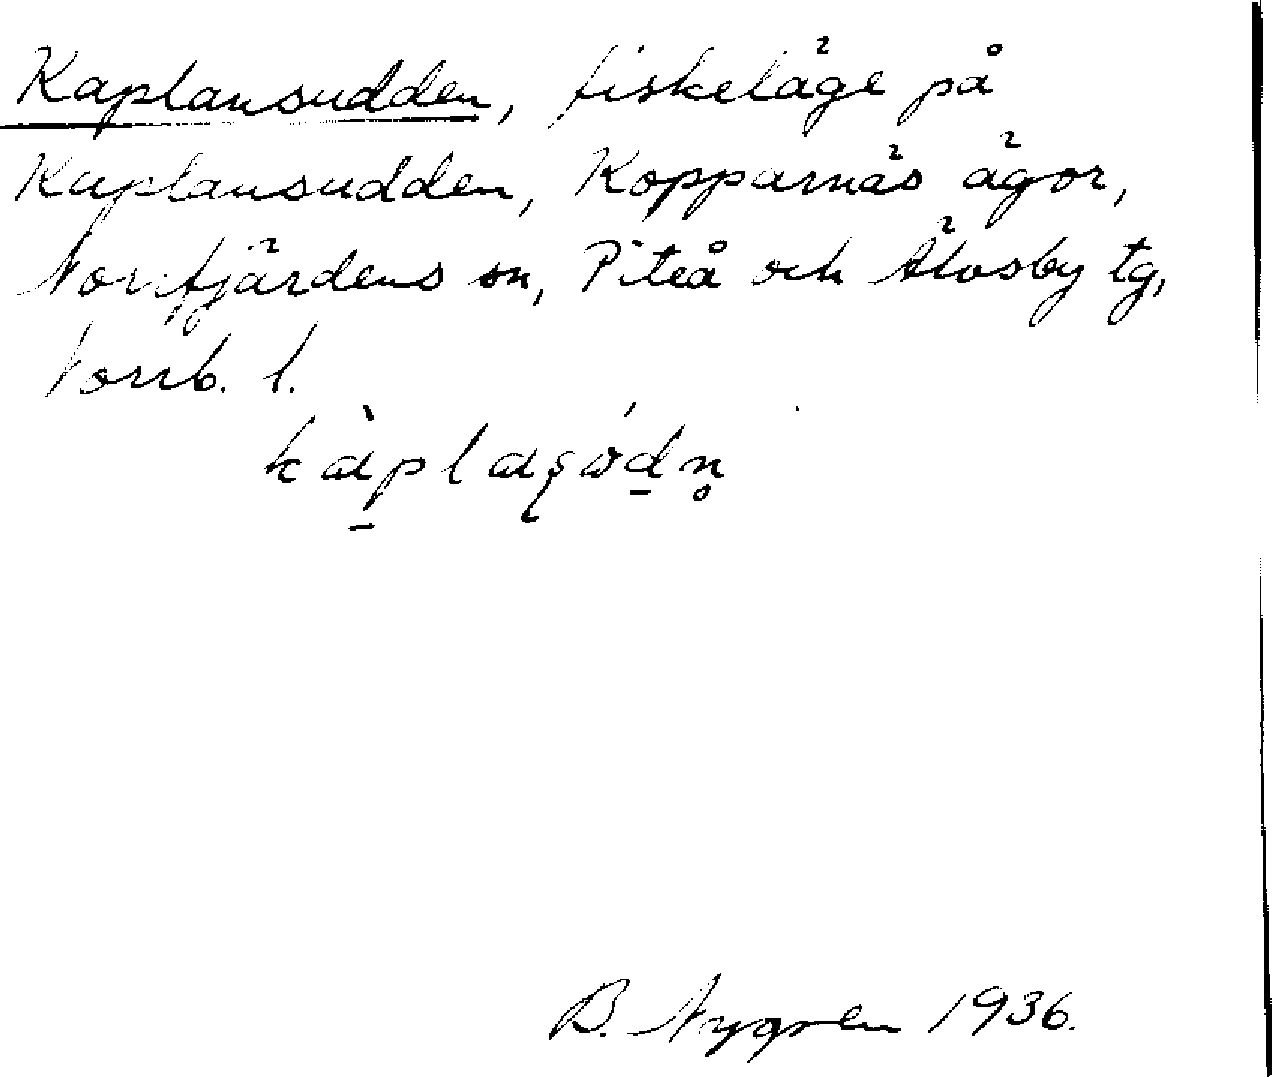 Kaplansudden, fiskeläge på
Kaplansudden, Kopparnäs ägor,
Norrfjärdens sn, Piteå och Älvsby tg,
Norrb. l.
B. Nygren 1936.